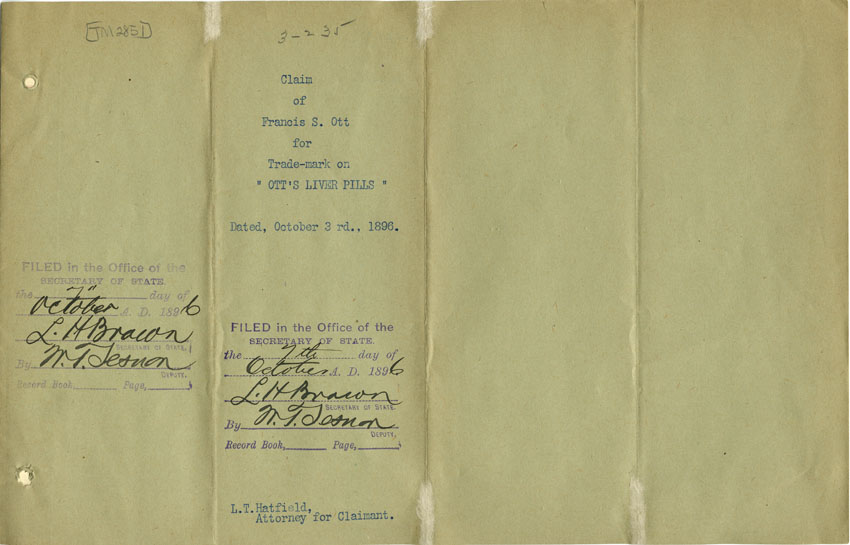 [TM2851]
3-235
Claim
of
Francis S. Ott
for
Trade-mark on
" OTT'S LIVER PILLS "
Dated, October 3 rd., 1896.
FILED in the Office of the
SECRETARY OF STATE.
the 7" day of
October A. D. 1896
L. H Brown
SECRETARY OF STATE.
By W. T. Sesnon
DEPUTY.
Record Book, Page,
FILED in the Office of the
SECRETARY OF STATE.
the 7th day of
October A. D. 1896
L. H Brown
SECRETARY OF STATE.
By W. T. Sesnon
DEPUTY.
Record Book, Page,
L.T.Hatfield,
Attorney for Claimant.